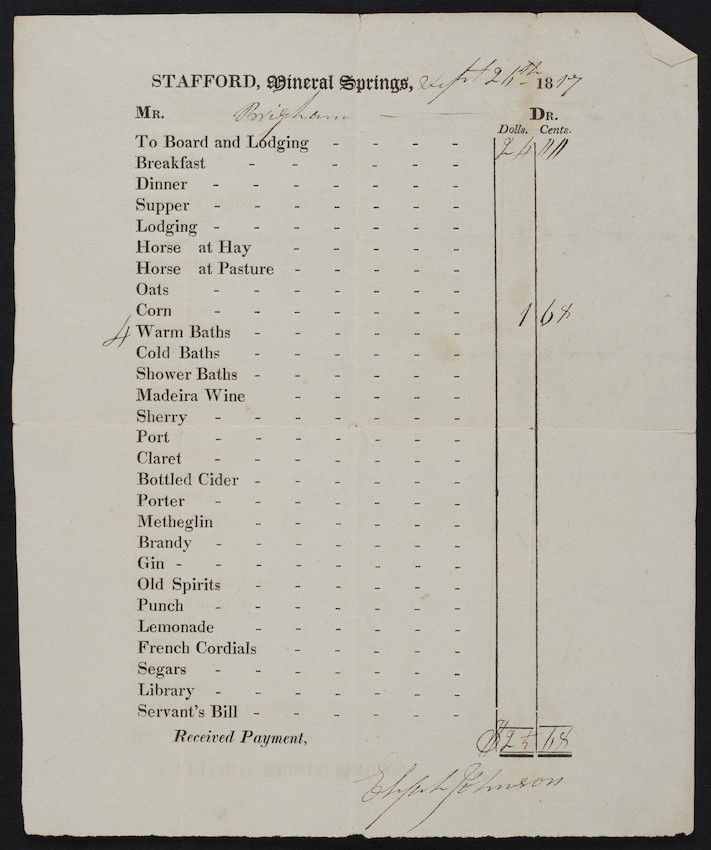 STAFFORD, Mineral Springs, Sept 1817
MR. Brigham DR.
Dolls. Cents.
To Board and Lodging - - - - 24
Breakfast - - - - - -
Dinner - - - - - - -
Supper - - - - - - -
Lodging - - - - - - -
Horse at Hay - - - - -
Horse at Pasture - - - - -
Oats - - - - - - -
Corn - - - - - - - 1 68
4 Warm Baths - - - - - -
Cold Baths - - - - - -
Shower Baths - - - - - -
Madeira Wine - - - - -
Sherry - - - - - - -
Port - - - - - - -
Claret - - - - - - -
Bottled Cider - - - - - -
Porter - - - - - - -
Metheglin - - - - - -
Brandy - - - - - - -
Gin - - - - - - - -
Old Spirits - - - - - -
Punch - - - - - - -
Lemonade - - - - - -
French Cordials - - - - -
Segars - - - - - - -
Library - - - - - - -
Servant's Bill - - - - - -
Received Payment, $25 68
Johnson